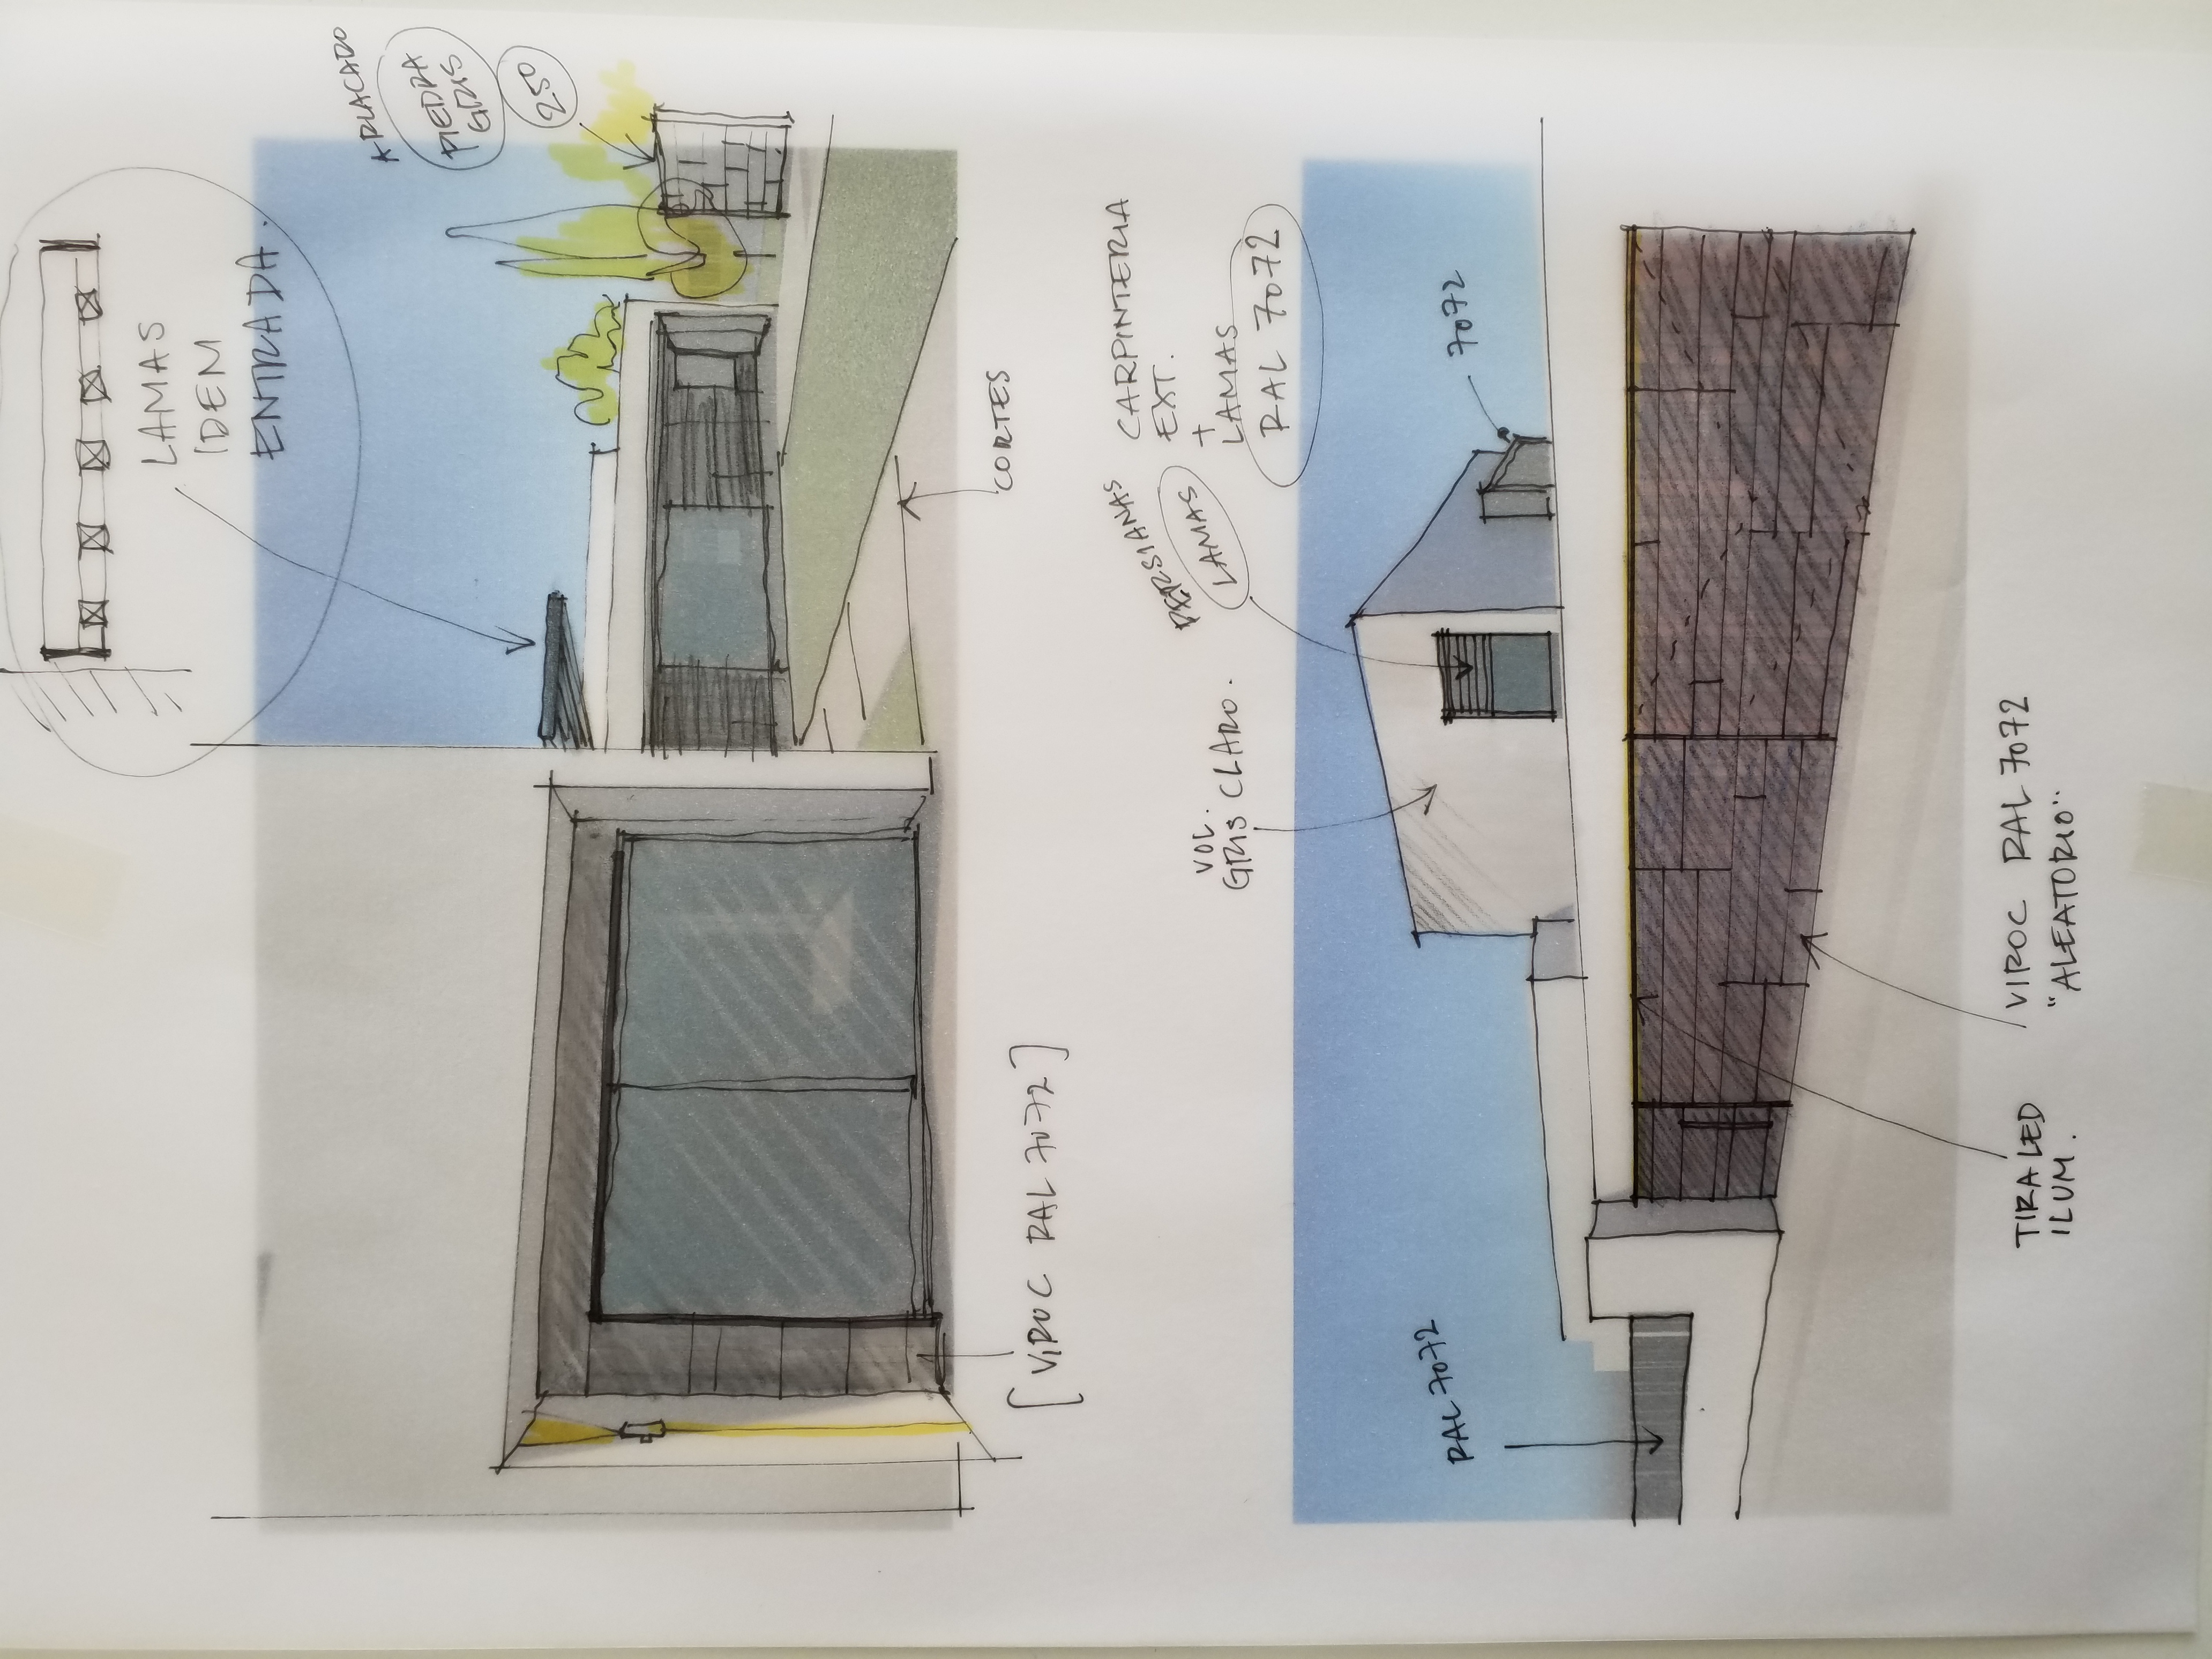 LAMAS
IDEM
ENTRADA.
APLACADO
PIEDRA
GRIS
250
CORTES
[VIROC RAL 7072]
PERSIANAS
LAMAS
CARPINTERIA
EXT.
+
LAMAS
RAL 7072
VOL.
GRIS CLARO.
RAL 7072
7072
TIRA LED
ILUM.
VIROC RAL 7072
"ALEATORIO"